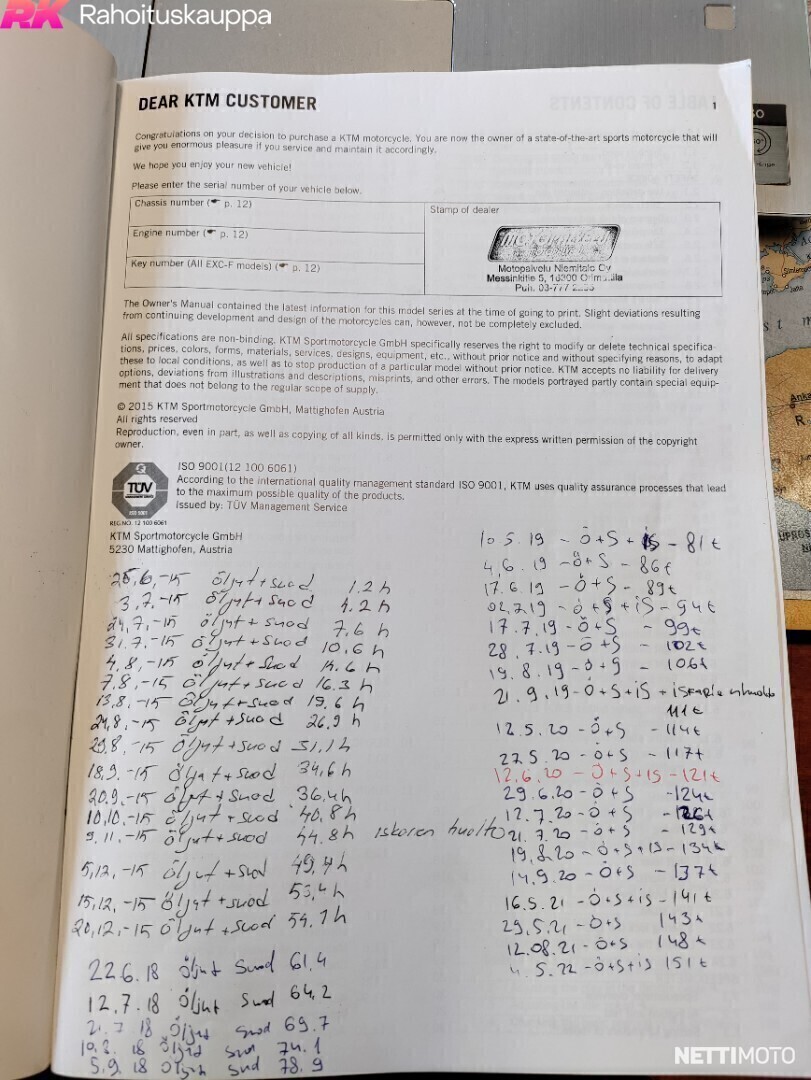 RK Rahoituskauppa
DEAR KTM CUSTOMER
1
Congratulations on your decision to purchase a KTM motorcycle. You are now the owner of a state-of-the-art sports motorcycle that will
give you enormous pleasure if you service and maintain it accordingly.
We hope you enjoy your new vehicle!
Please enter the serial number of your vehicle below.
Chassis number (☛ p. 12)
Stamp of dealer
Engine number (☛ p. 12)
Key number (All EXC-F models) (☛ p. 12)
Motopalvelu Niemitalo Oy
Messinkitie 5, 16300 Orimattila
Puh. 03-777
The Owner's Manual contained the latest information for this model series at the time of going to print. Slight deviations resulting
from continuing development and design of the motorcycles can, however, not be completely excluded.
All specifications are non-binding. KTM Sportmotorcycle GmbH specifically reserves the right to modify or delete technical specifica-
tions, prices, colors, forms, materials, services, designs, equipment, etc., without prior notice and without specifying reasons, to adapt
these to local conditions, as well as to stop production of a particular model without prior notice. KTM accepts no liability for delivery
options, deviations from illustrations and descriptions, misprints, and other errors. The models portrayed partly contain special equip-
ment that does not belong to the regular scope of supply.
© 2015 KTM Sportmotorcycle GmbH, Mattighofen Austria
All rights reserved
Reproduction, even in part, as well as copying of all kinds, is permitted only with the express written permission of the copyright
owner.
TÜV
REG.NO. 12 100 6061
ISO 9001(12 100 6061)
According to the international quality management standard ISO 9001, KTM uses quality assurance processes that lead
to the maximum possible quality of the products.
Issued by: TÜV Management Service
KTM Sportmotorcycle GmbH
5230 Mattighofen, Austria
25,6,-15 Öljyt+suod 1.2 h
3,7,-15 Öljyt+suod 4.2 h
24,7,-15 Öljyt+suod 7,6 h
31,7,-15 Öljyt+suod 10,6 h
4,8,-15 Öljyt+suod 14.6 h
7,8,-15 Öljyt+suod 16.3 h
13,8,-15 Öljyt+suod 19,6 h
24,8,-15 Öljyt+suod 26,9 h
29,8,-15 Öljyt+suod 31,1 h
18,9,-15 Öljyt+suod 34,6 h
20,9,-15 Öljyt+suod 36,4 h
10,10,-15 Öljyt+suod 40,8 h
9,11,-15 Öljyt+suod 44.8 h iskaren huolto
5,12,-15 Öljyt+suod 49,4 h
15,12,-15 Öljyt+suod 53,4 h
20,12,-15 Öljyt+suod 59.1 h
22.6.18 Öljyt Suod 61,4
12,7.18 Öljyt suod 64,2
21.7 18 Öljyt suod 69.7
10.8. 18 Öljyt suod 74.1
5.9.18 Öljyt suod 78.9
10 5.19 - Ö+S + iS - 81 t
4.6.19 - Ö+S - 86 t
17.6.19 - Ö+S - 89 t
02.7.19 - Ö+S + iS - 94 t
17.7.19 - Ö+S - 99 t
28.7.19 - Ö+S - 102 t
19.8.19 - Ö+S - 106 t
21.9.19 - Ö+S + iS +
111 t
12.5.20 - Ö+S - 114 t
27.5.20 - Ö+S - 117 t
12.6.20 - Ö+S+iS - 121 t
29.6.20 - Ö+S - 124 t
12.7.20 - Ö+S - 126 t
21.7.20 - Ö+S - 129 t
19.8.20 - Ö+S+iS - 134 t
14.9.20 - Ö+S - 137 t
16.5.21 - Ö+S+iS - 141 t
29.5.21 - Ö+S 143 t
12.08.21 - Ö+S 148 t
4.5.22 - Ö+S+iS 151 t
NETTIMOTO